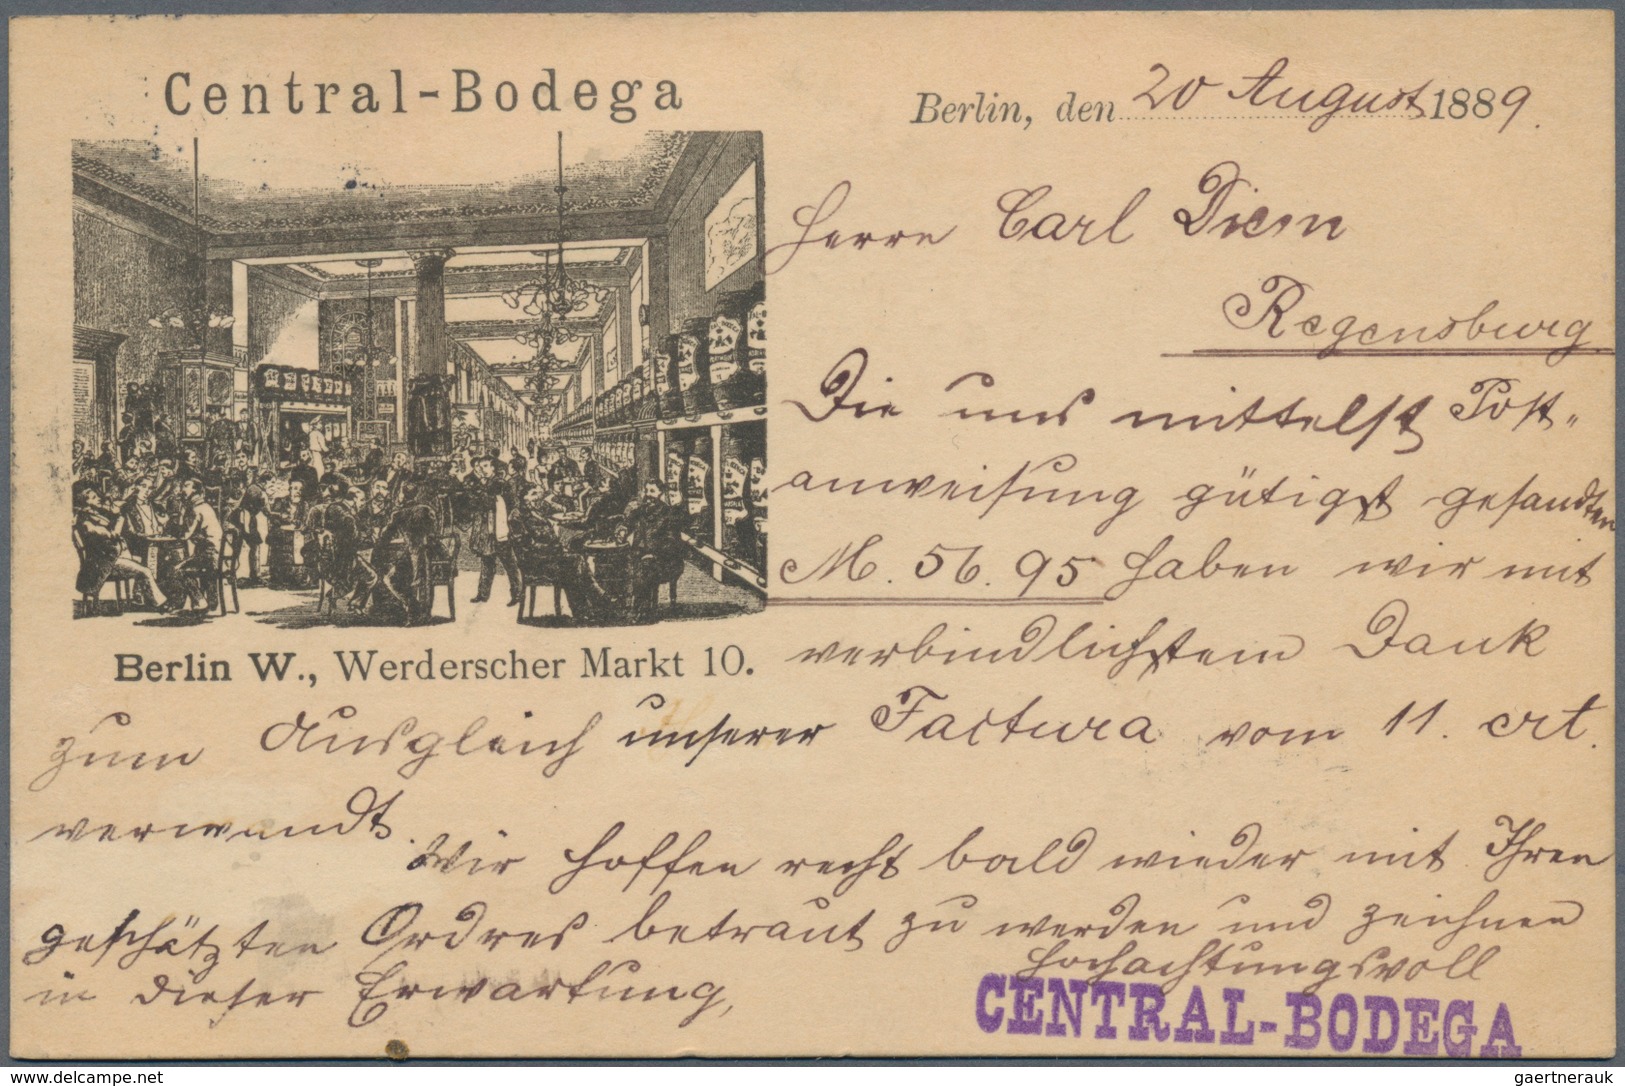 Central-Bodega
Berlin, den 20 August 1889.
Herrn Carl Diem
Regensburg.
Die uns mittelst Post-
anweisung gütigst gesandten
M. 56.95 haben wir mit
verbindlichstem Dank
Berlin W., Werderscher Markt 10.
zum Ausgleich unserer Factura vom 11. crt.
verwandt.
Wir hoffen recht bald wieder mit Ihren
geschätzten Ordres betraut zu werden und zeichnen
in dieser Erwartung,
Hochachtungsvoll
CENTRAL-BODEGA
www.delcampe.net
gaertnerauk